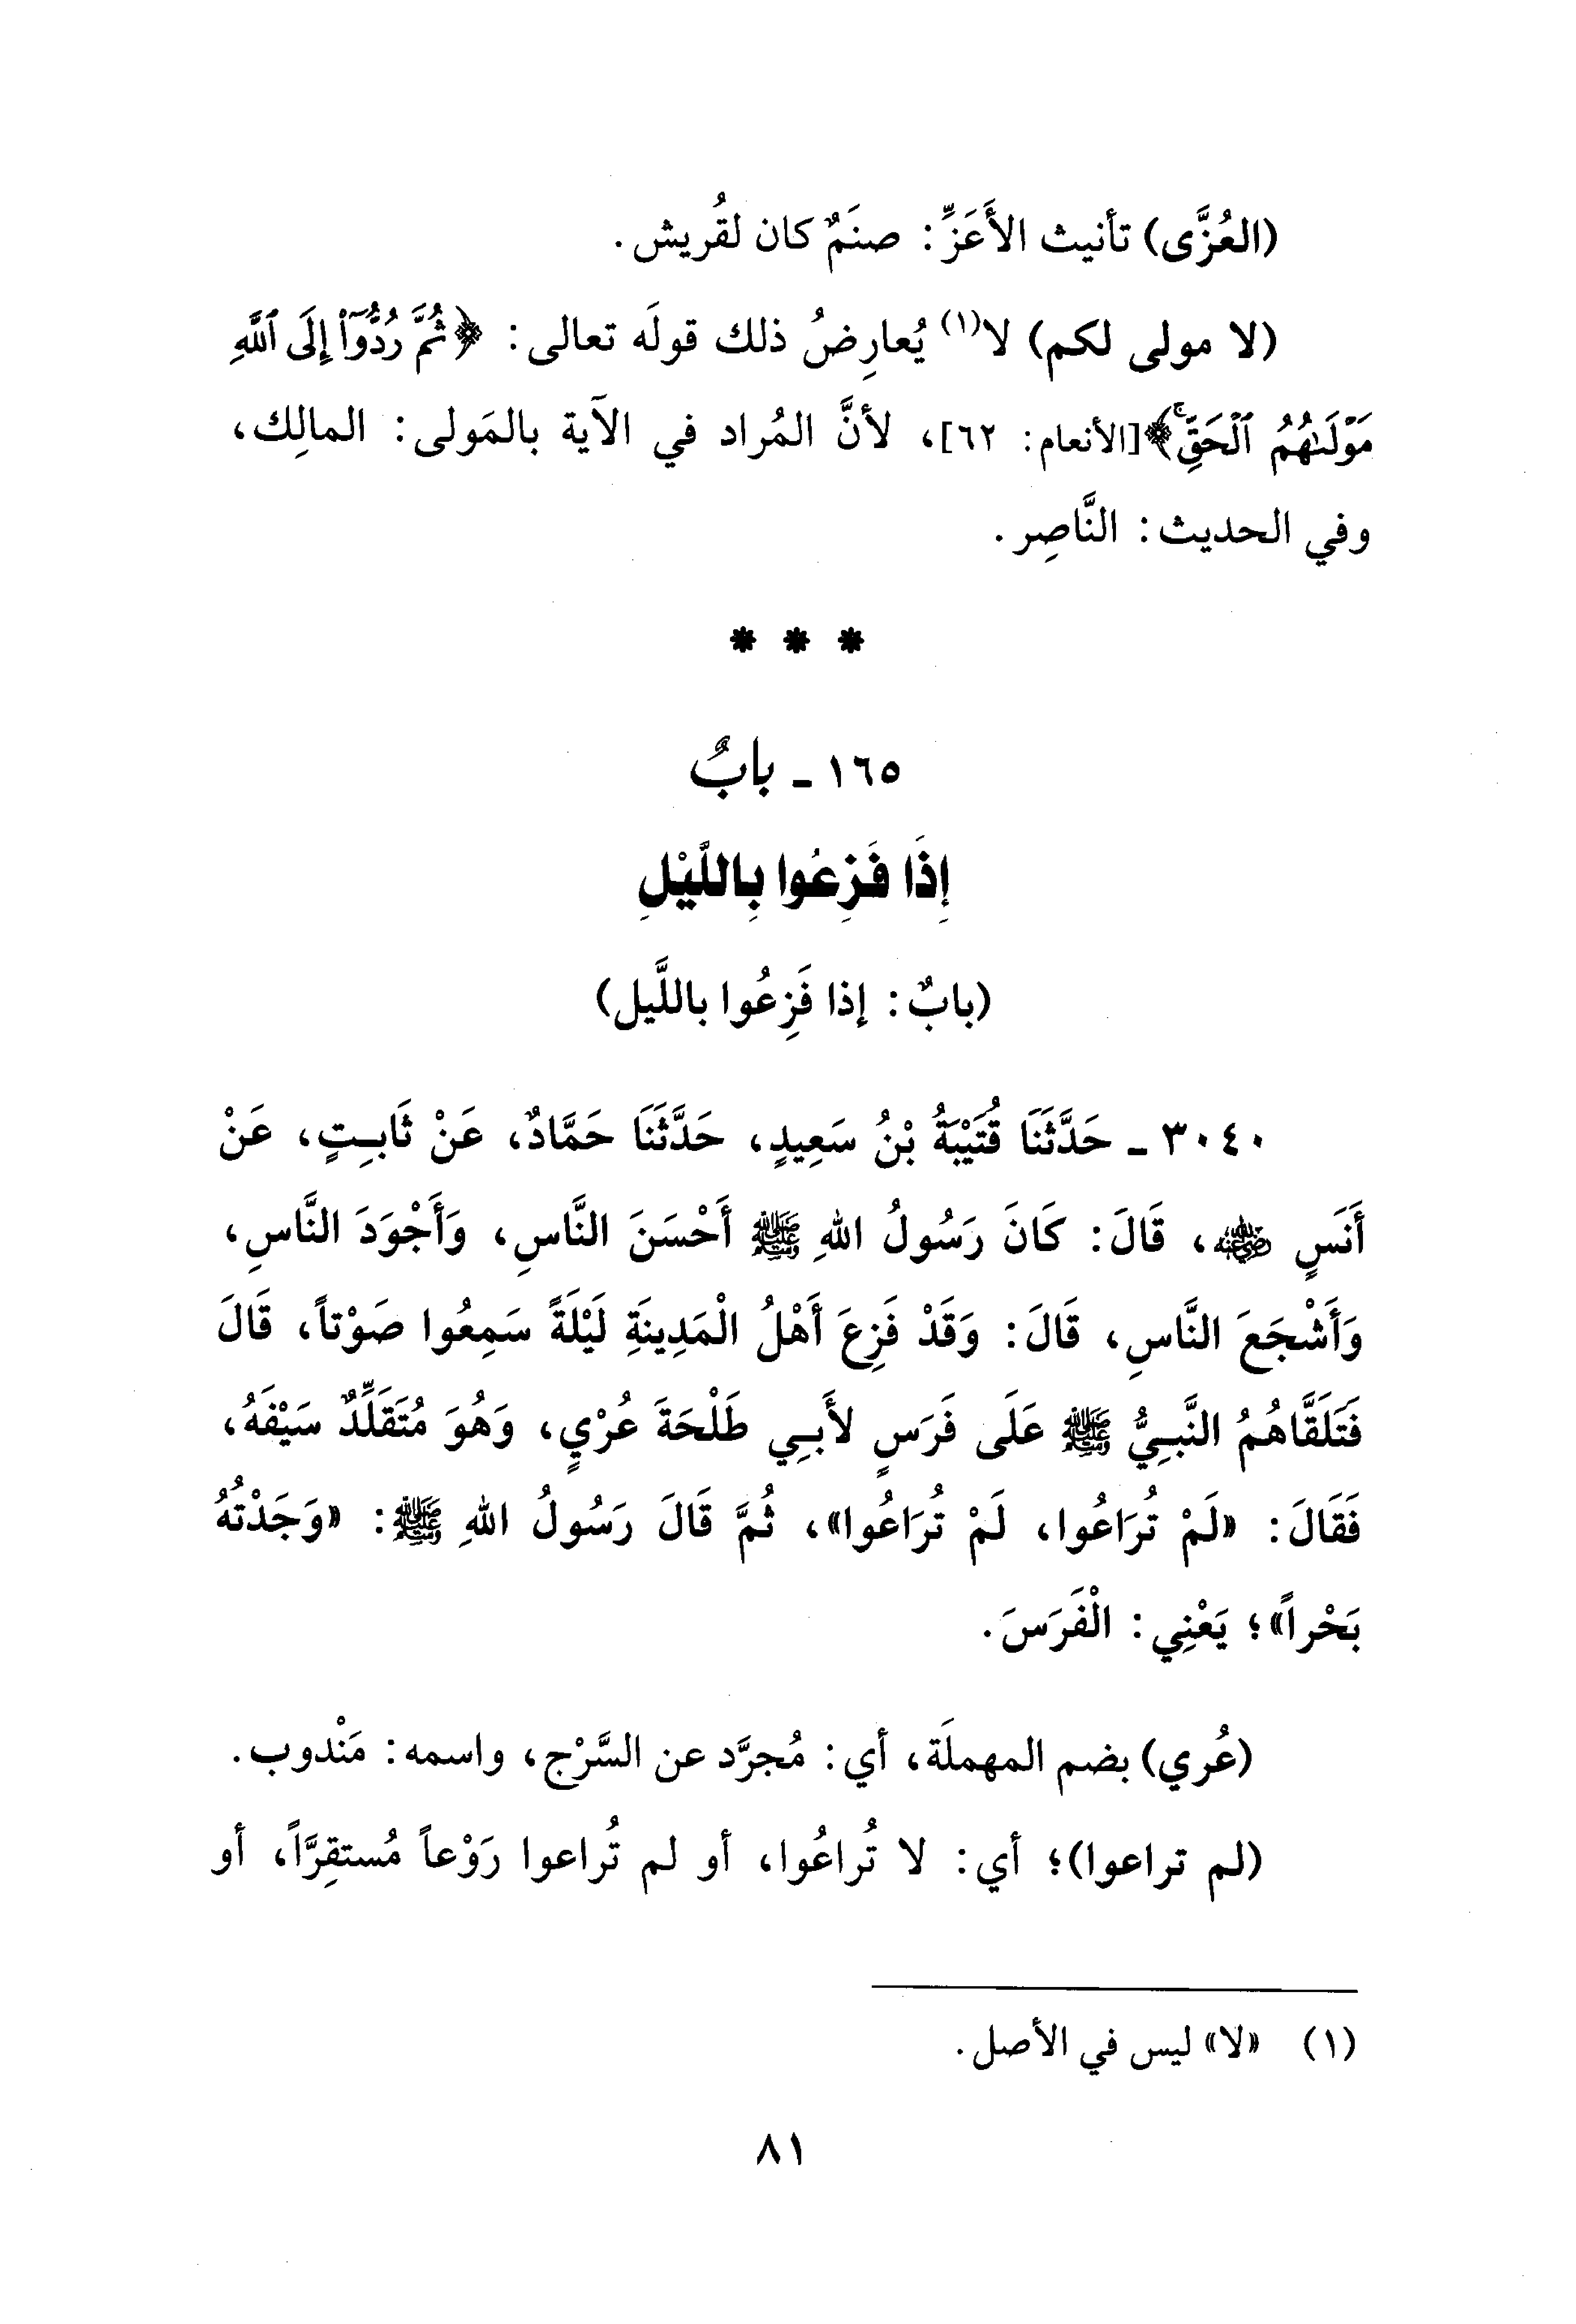 (العُزَّى) تأنيث الأَعَزِّ: صنَمٌ كان لقُريش.
(لا مولى لكم) لا(١) يُعارِضُ ذلك قولَه تعالى: ﴿ثُمَّ رُدُّوٓا۟ إِلَى ٱللَّهِ
مَوْلَىٰهُمُ ٱلْحَقِّ ۚ﴾[الأنعام: ٦٢]، لأنَّ المُراد في الآية بالمَولى: المالِك،
وفي الحديث: النَّاصِر.
* * *
١٦٥ - بابٌ
إِذَا فَزِعُوا بِاللَّيْلِ
(بابٌ: إذا فَزِعُوا باللَّيل)
٣٠٤٠ - حَدَّثَنَا قُتَيْبَةُ بْنُ سَعِيدٍ، حَدَّثَنَا حَمَّادٌ، عَنْ ثَابِتٍ، عَنْ
أَنَسٍ رضي الله عنه، قَالَ: كَانَ رَسُولُ اللهِ ﷺ أَحْسَنَ النَّاسِ، وَأَجْوَدَ النَّاسِ،
وَأَشْجَعَ النَّاسِ، قَالَ: وَقَدْ فَزِعَ أَهْلُ الْمَدِينَةِ لَيْلَةً سَمِعُوا صَوْتاً، قَالَ
فَتَلَقَّاهُمُ النَّبِيُّ ﷺ عَلَى فَرَسٍ لأَبِي طَلْحَةَ عُرْيٍ، وَهُوَ مُتَقَلِّدٌ سَيْفَهُ،
فَقَالَ: «لَمْ تُرَاعُوا، لَمْ تُرَاعُوا»، ثُمَّ قَالَ رَسُولُ اللهِ ﷺ: «وَجَدْتُهُ
بَحْراً»؛ يَعْنِي: الْفَرَسَ.
(عُري) بضم المهملَة، أي: مُجرَّد عن السَّرْج، واسمه: مَنْدوب.
(لم تراعوا)؛ أي: لا تُراعُوا، أو لم تُراعوا رَوْعاً مُستقِرَّاً، أو
(١) «لا» ليس في الأصل.
٨١